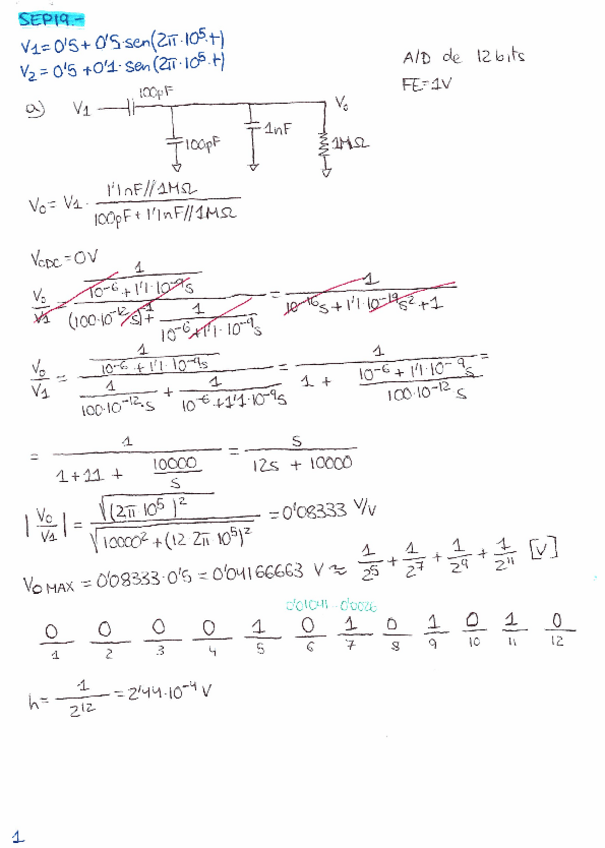 SEP19.-
V1=0'5+0'5·sen(2π·10⁵·t)
V2=0'5+0'1·sen(2π·10⁵·t)
A/D de 12 bits
FE=1V
a) V1 100pF Vo
100pF 1nF 1MΩ
Vo = V1 · (1'1nF//1MΩ) / (100pF + 1'1nF//1MΩ)
VcDC = 0V
Vo/V1 = (1/(10⁻⁶+1'1·10⁻⁹s)) / ((100·10⁻¹²s)⁻¹ + 1/(10⁻⁶+1'1·10⁻⁹s)) = 1/(10⁻¹⁶s+1'1·10⁻¹⁹s²+1)
Vo/V1 = (1/(10⁻⁶+1'1·10⁻⁹s)) / (1/(100·10⁻¹²·s) + 1/(10⁻⁶+1'1·10⁻⁹s)) = 1 / (1 + (10⁻⁶+1'1·10⁻⁹s)/(100·10⁻¹² s)) =
= 1 / (1+11+ 10000/s) = s / (12s + 10000)
|Vo/V1| = √((2π·10⁵)²) / √(10000²+(12·2π·10⁵)²) = 0'08333 V/V
Vo MAX = 0'08333·0'5 = 0'04166663 V ≈ 1/2⁵ + 1/2⁷ + 1/2⁹ + 1/2¹¹ [V]
0'01041-0'0026
0 0 0 0 1 0 1 0 1 0 1 0
1 2 3 4 5 6 7 8 9 10 11 12
h = 1/2¹² = 2'44·10⁻⁴ V
1